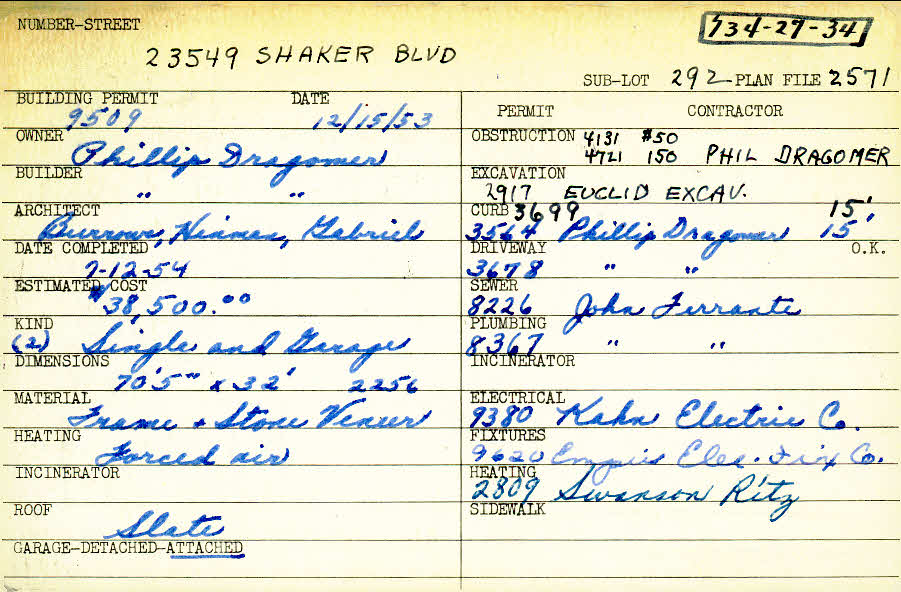 NUMBER-STREET
734-27-34
23549 SHAKER BLVD
SUB-LOT 292 PLAN FILE 2571
BUILDING PERMIT DATE
9509 12/15/53
OWNER
Phillip Dragomer
BUILDER
" "
ARCHITECT
Burrows, Hinman, Gabriel
DATE COMPLETED
7-12-54
ESTIMATED COST
$38,500.00
KIND
(2) Single and Garage
DIMENSIONS
70'5" x 32' 2256
MATERIAL
Frame + Stone Veneer
HEATING
Forced air
INCINERATOR
ROOF
Slate
GARAGE-DETACHED-ATTACHED
PERMIT CONTRACTOR
OBSTRUCTION 4131 $50
4721 150 PHIL DRAGOMER
EXCAVATION
2917 EUCLID EXCAV.
CURB 3699 15'
3564 Phillip Dragomer 15'
DRIVEWAY O.K.
3678 " "
SEWER
8226 John Ferrante
PLUMBING
8367 " "
INCINERATOR
ELECTRICAL
9380 Kahn Electric Co.
FIXTURES
9620 Empire Elec. Fix Co.
HEATING
2809 Swanson Ritz
SIDEWALK